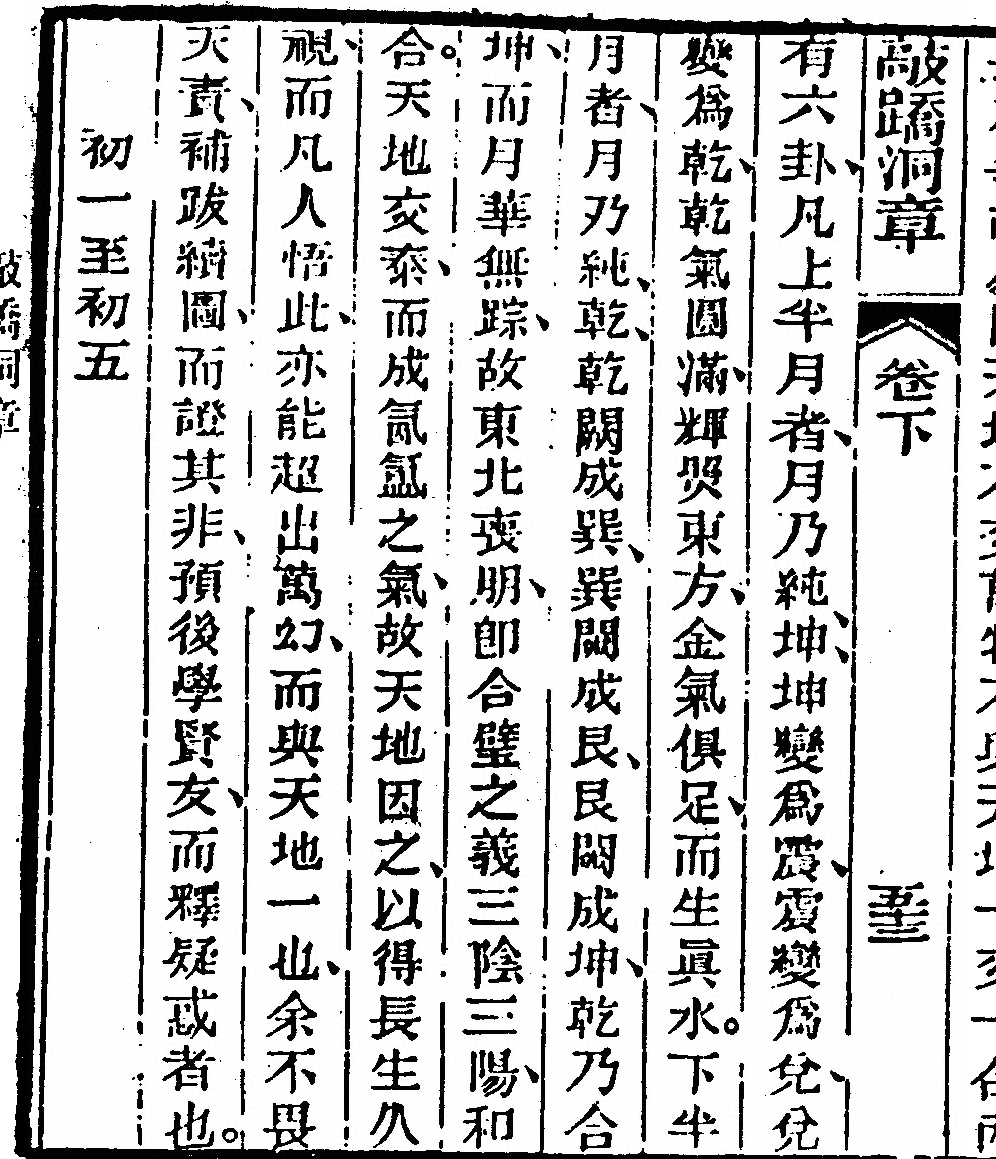 敲蹻洞章
卷下
五十三
有六卦、凡上半月者、月乃純、坤、坤變爲震、震變爲兌、兌
變爲乾、乾氣圓滿、輝煚東方、金氣俱足、而生眞水。下半
月者、月乃純、乾、乾闕成巽、巽闕成艮、艮闕成坤、乾乃合
坤、而月華無踪、故東北喪明、卽合璧之義三陰三陽、和
合。天地交泰、而成氤氳之氣、故天地因之、以得長生久
視、而凡人悟此、亦能超出萬幻、而與天地一也、余不畏
天責、補跋續圖、而證其非、預後學賢友、而釋疑惑者也。
初一至初五